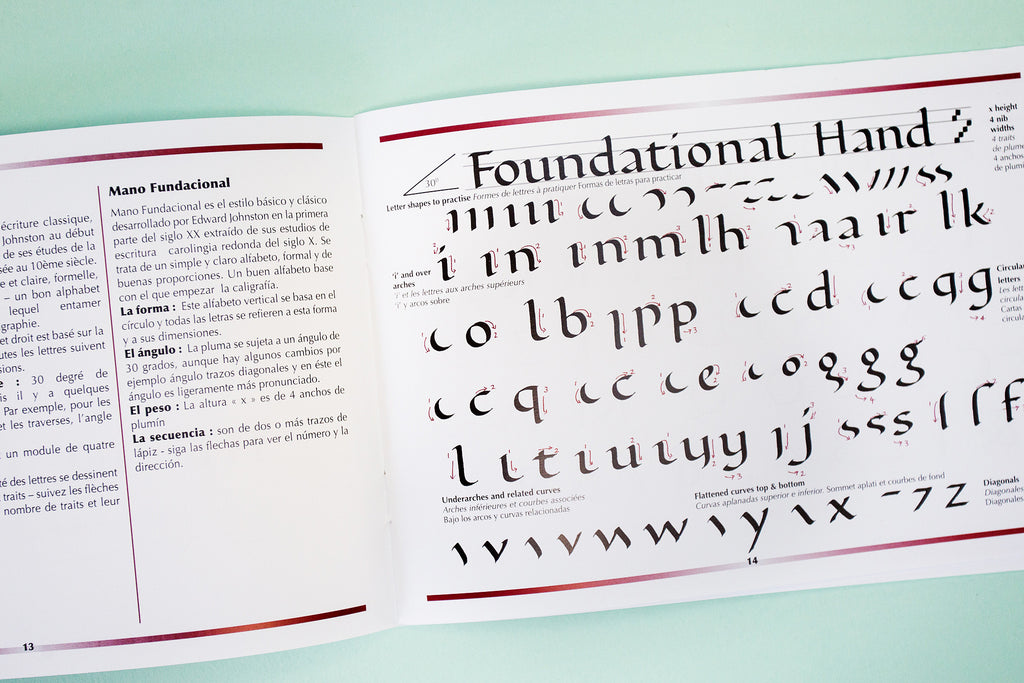 écriture classique,
Johnston au début
de ses études de la
sée au 10ème siècle.
e et claire, formelle,
– un bon alphabet
lequel entamer
graphie.
et droit est basé sur la
utes les lettres suivent
sions.
e : 30 degré de
is il y a quelques
Par exemple, pour les
et les traverses, l'angle
un module de quatre
té des lettres se dessinent
traits – suivez les flèches
nombre de traits et leur
13
Mano Fundacional
Mano Fundacional es el estilo básico y clásico
desarrollado por Edward Johnston en la primera
parte del siglo XX extraído de sus estudios de
escritura carolingia redonda del siglo X. Se
trata de un simple y claro alfabeto, formal y de
buenas proporciones. Un buen alfabeto base
con el que empezar la caligrafía.
La forma : Este alfabeto vertical se basa en el
círculo y todas las letras se refieren a esta forma
y a sus dimensiones.
El ángulo : La pluma se sujeta a un ángulo de
30 grados, aunque hay algunos cambios por
ejemplo ángulo trazos diagonales y en éste el
ángulo es ligeramente más pronunciado.
El peso : La altura « x » es de 4 anchos de
plumín
La secuencia : son de dos o más trazos de
lápiz - siga las flechas para ver el número y la
dirección.
30°
Foundational Hand
x height
4 nib
widths
4 traits
de plume
4 anchos
de plumí
Letter shapes to practise Formes de lettres à pratiquer Formas de letras para practicar
'i' and over
arches
'i' et les lettres aux arches supérieurs
'i' y arcos sobre
i ı n ı n m l h ı a a ı r l k
Circular
letters
Les lett
circula
Cartas
circula
c o l b ı p p c c d c c q g
c c q c c c e c o g g g
l ı t ı u ı y y ı j s s s l ſ f
Underarches and related curves
Arches inférieures et courbes associées
Bajo los arcos y curvas relacionadas
Flattened curves top & bottom
Curvas aplanadas superior e inferior. Sommet aplati et courbes de fond
Diagonals
Diagonales
Diagonales
v v w w y x 7 z
14